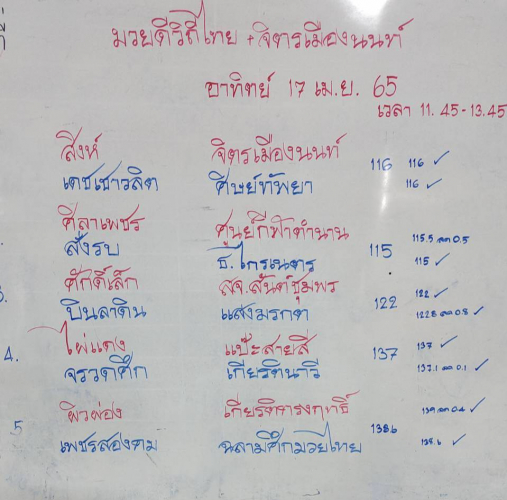 มวยดีวิถีไทย + จิตรเมืองนนท์
อาทิตย์ 17 เม.ย. 65
เวลา 11.45-13.45
สิงห์ จิตรเมืองนนท์ 116 116 ✓
เดชเชาวลิต ศิษย์ทัพยา 116 ✓
ศิลาเพชร ศูนย์กีฬาตำนาน 115.5 ลด 0.5
สั่งรบ ธ.ไกรเนตร 115 115 ✓
3. ศักดิ์เล็ก สจ.สันต์ชุมพร 122 122 ✓
บินลาดิน แสงมรกต 122.8 ลด 0.8 ✓
4. ไผ่แดง แป๊ะสายสี 137 137 ✓
จรวดศึก เกียรตินาวี 137.1 ลด 0.1 ✓
5 ผิวผ่อง เกียรติดารงฤทธิ์ 138.6 139 ลด 0.4 ✓
เพชรสองคม ฉลามศึกมวยไทย 138.6 ✓